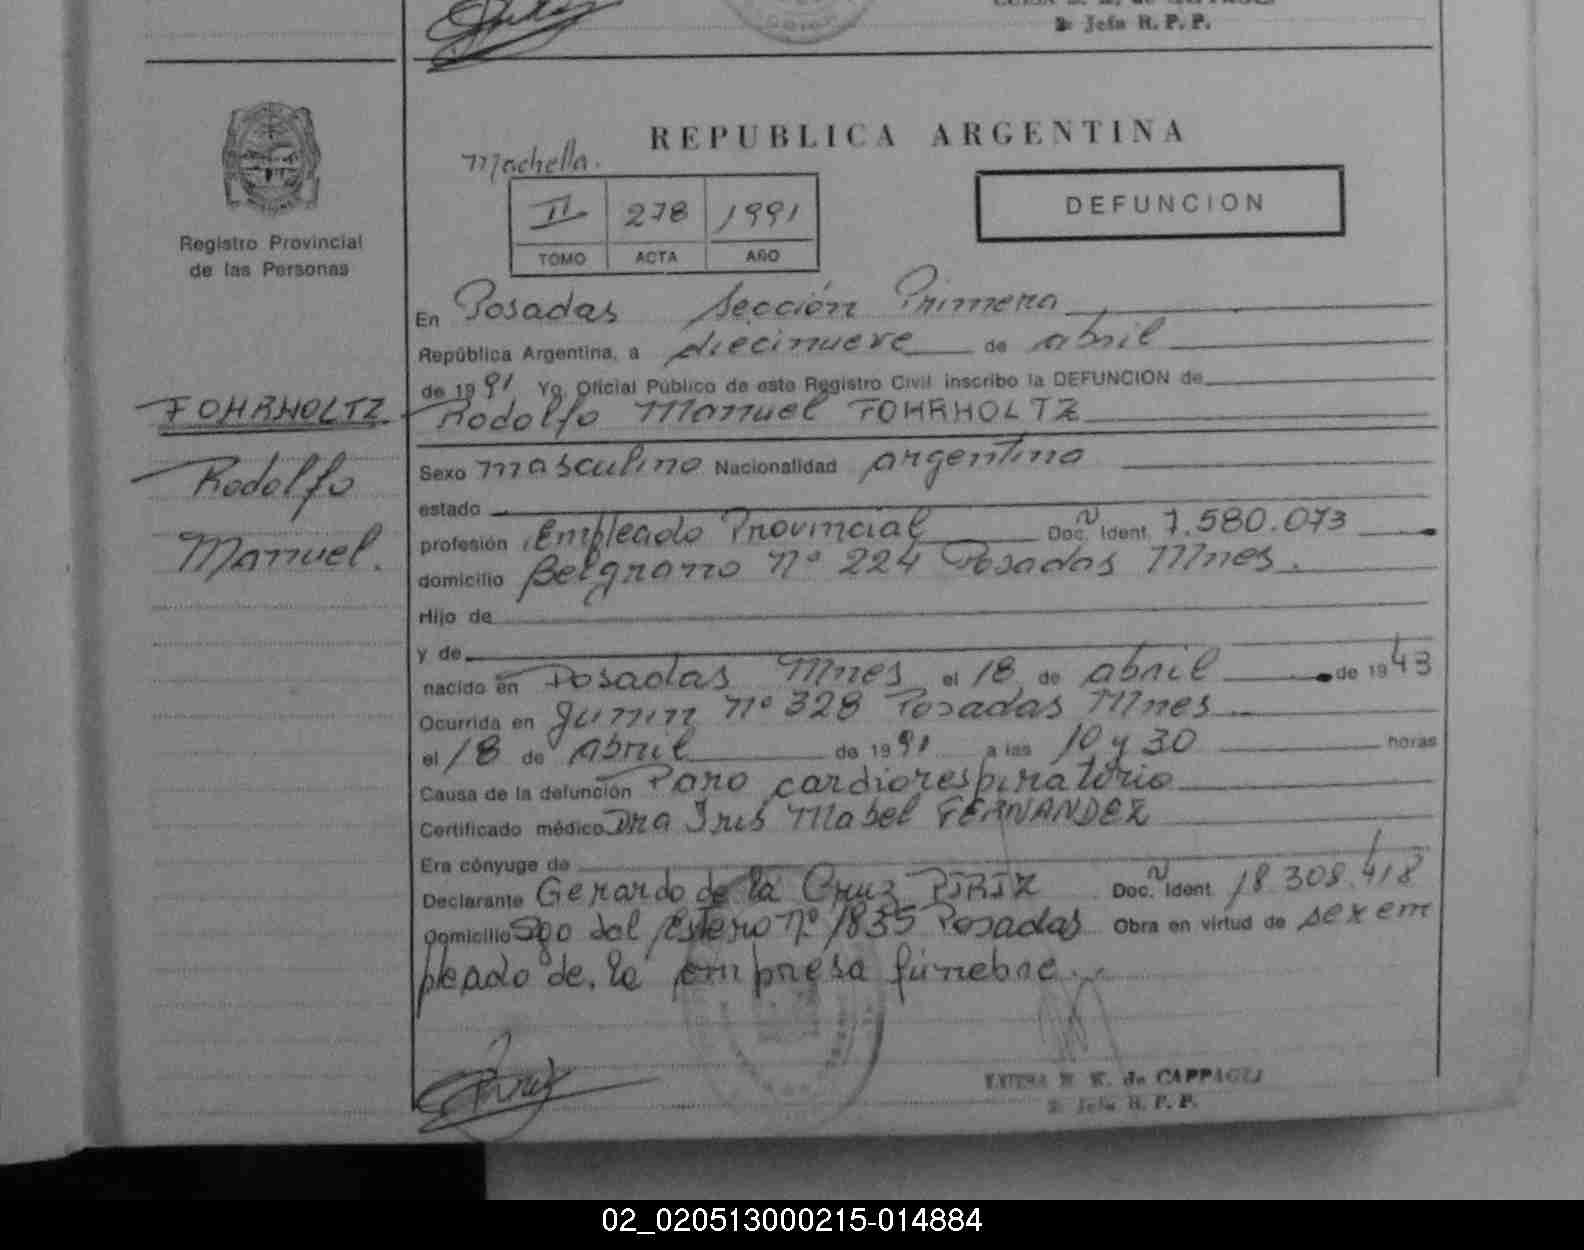 2a Jefa R. P. P.
REPUBLICA ARGENTINA
Machella.
II 278 1991
TOMO ACTA AÑO
DEFUNCION
Registro Provincial
de las Personas
En Posadas Sección Primera
República Argentina, a diecinueve de abril
de 1991 Yo, Oficial Público de este Registro Civil inscribo la DEFUNCION de
FOHRHOLTZ
Rodolfo
Manuel.
Rodolfo Manuel FOHRHOLTZ
Sexo masculino Nacionalidad argentina
estado
profesión Empleado Provincial Doc. Ident. 7.580.073
domicilio Belgrano Nº 224 Posadas Mnes.
Hijo de
y de
nacido en Posadas Mnes el 18 de abril de 1943
Ocurrida en Junin Nº 328 Posadas Mnes
el 18 de abril de 1991 a las 10 y 30 horas
Causa de la defunción Paro cardiorespiratorio
Certificado médico Dra Iris Mabel FERNANDEZ
Era cónyuge de
Declarante Gerardo de la Cruz PIRIZ Doc. Ident. 18.308.418
Domicilio Sgo del Estero Nº 1835 Posadas Obra en virtud de ser em
pleado de la empresa fúnebre.
de CAPPAGLI
Jefa R. P. P.
02_020513000215-014884